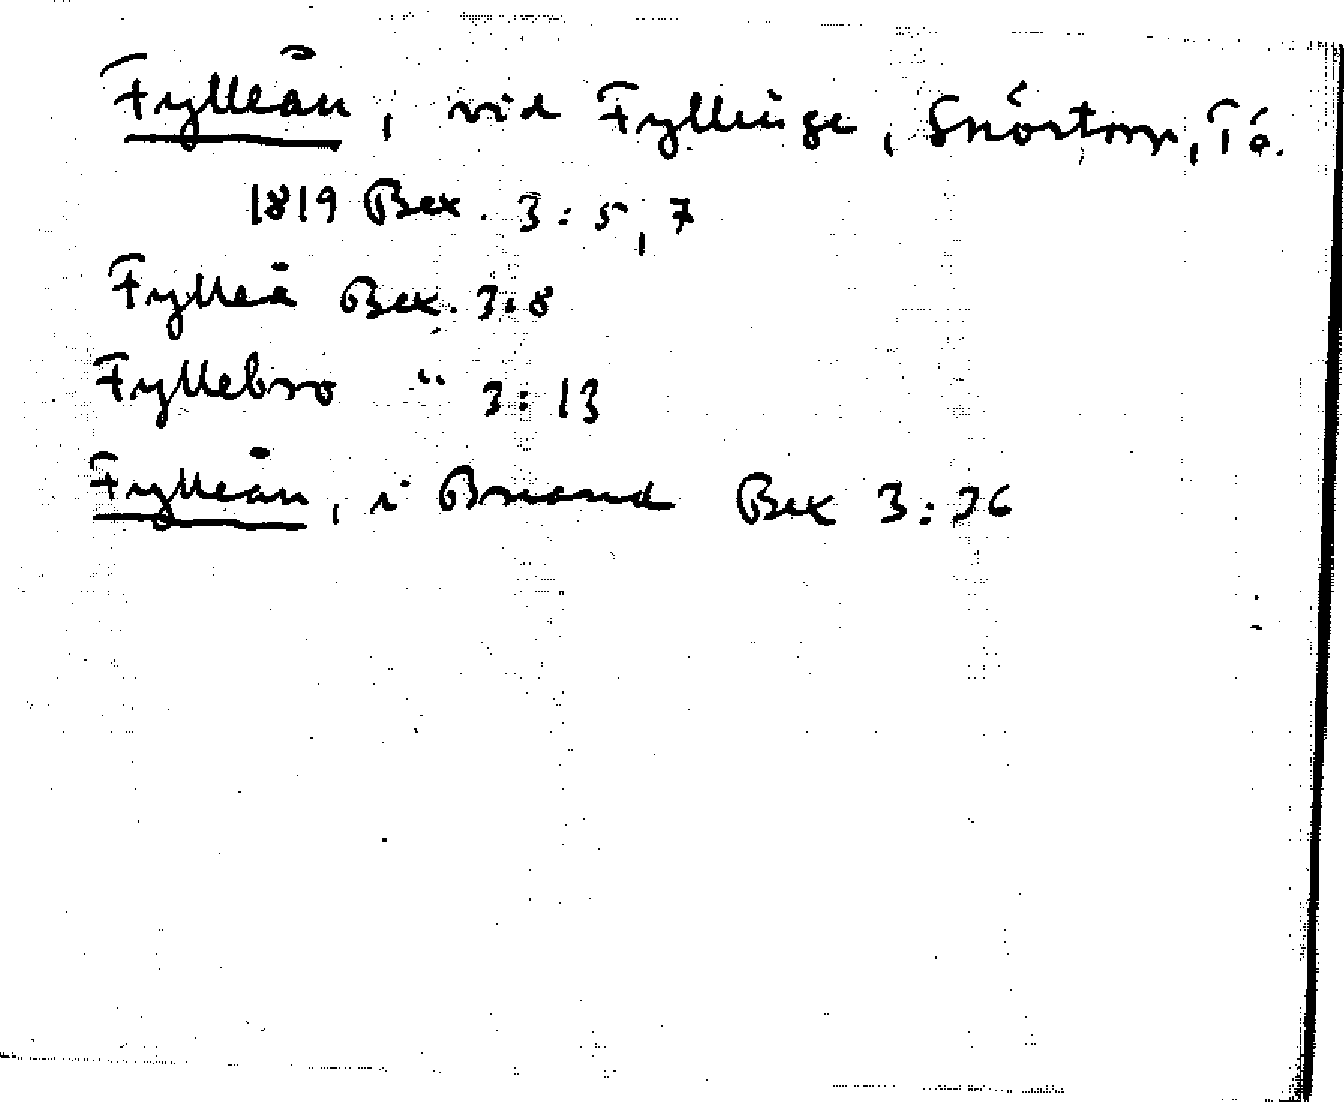 Fylleån, vid Fyllinge, Snöstorp, Tö.
1819 Bex. 3:5, 7
Fylleå Bex. 3:8
Fyllebro " 3:13
Fylleån, i Breared Bex 3:76